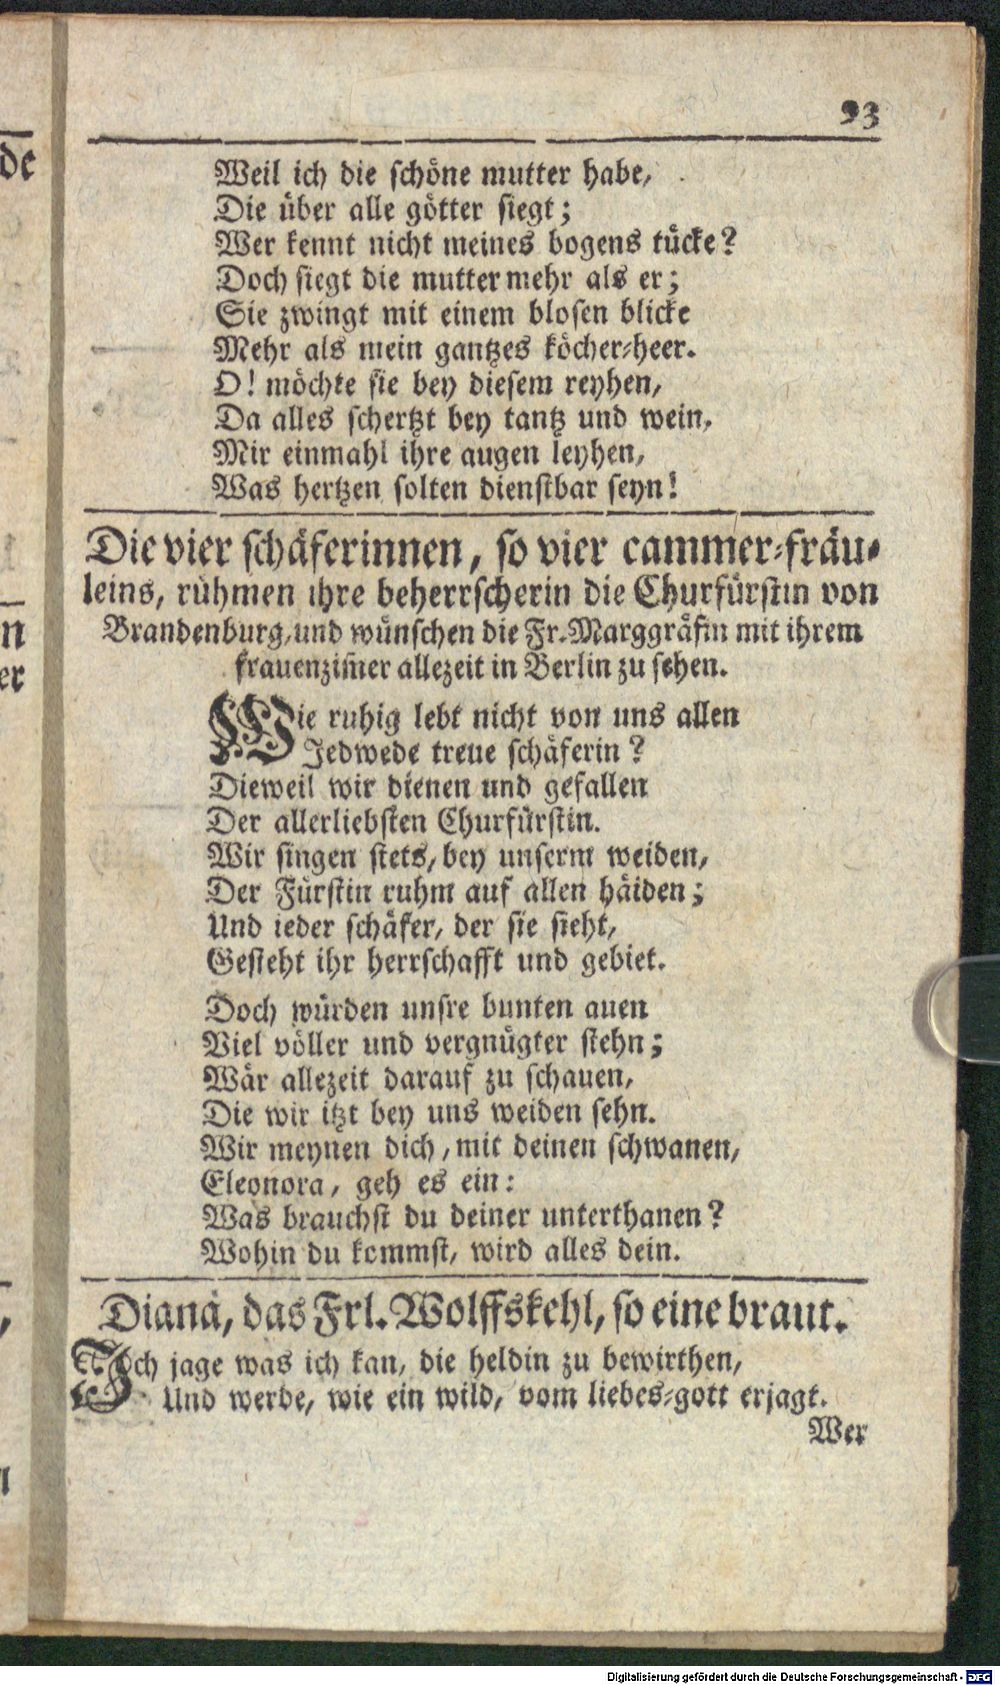 93
Weil ich die schöne mutter habe,
Die über alle götter siegt;
Wer kennt nicht meines bogens tücke?
Doch siegt die mutter mehr als er;
Sie zwingt mit einem blosen blicke
Mehr als mein gantzes köcher-heer.
O! möchte sie bey diesem reyhen,
Da alles schertzt bey tantz und wein,
Mir einmahl ihre augen leyhen,
Was hertzen solten dienstbar seyn!
Die vier schäferinnen, so vier cammer-fräu-
leins, rühmen ihre beherrscherin die Churfürstin von
Brandenburg, und wünschen die Fr. Marggräfin mit ihrem
frauenzim̃er allezeit in Berlin zu sehen.
Wie ruhig lebt nicht von uns allen
Jedwede treue schäferin?
Dieweil wir dienen und gefallen
Der allerliebsten Churfürstin.
Wir singen stets, bey unserm weiden,
Der Fürstin ruhm auf allen häiden;
Und ieder schäfer, der sie sieht,
Gesteht ihr herrschafft und gebiet.
Doch würden unsre bunten auen
Viel völler und vergnügter stehn;
Wär allezeit darauf zu schauen,
Die wir itzt bey uns weiden sehn.
Wir meynen dich, mit deinen schwanen,
Eleonora, geh es ein:
Was brauchst du deiner unterthanen?
Wohin du kommst, wird alles dein.
Diana, das Frl. Wolffskehl, so eine braut.
Ich jage was ich kan, die heldin zu bewirthen,
Und werde, wie ein wild, vom liebes-gott erjagt.
Wer
de
n
er
Digitalisierung gefördert durch die Deutsche Forschungsgemeinschaft - DFG